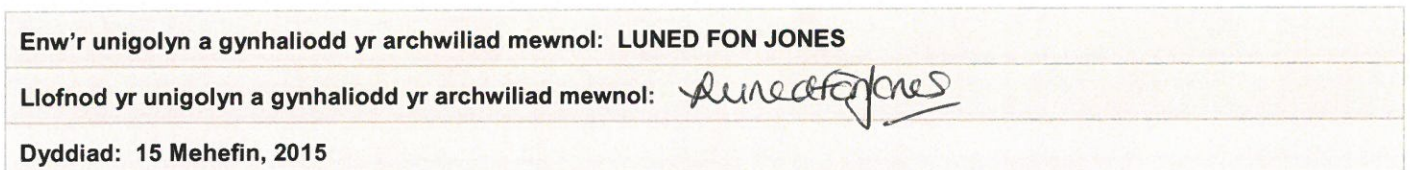 Enw'r unigolyn a gynhaliodd yr archwiliad mewnol: LUNED FON JONES
Llofnod yr unigolyn a gynhaliodd yr archwiliad mewnol: Luned Fôn Jones
Dyddiad: 15 Mehefin, 2015